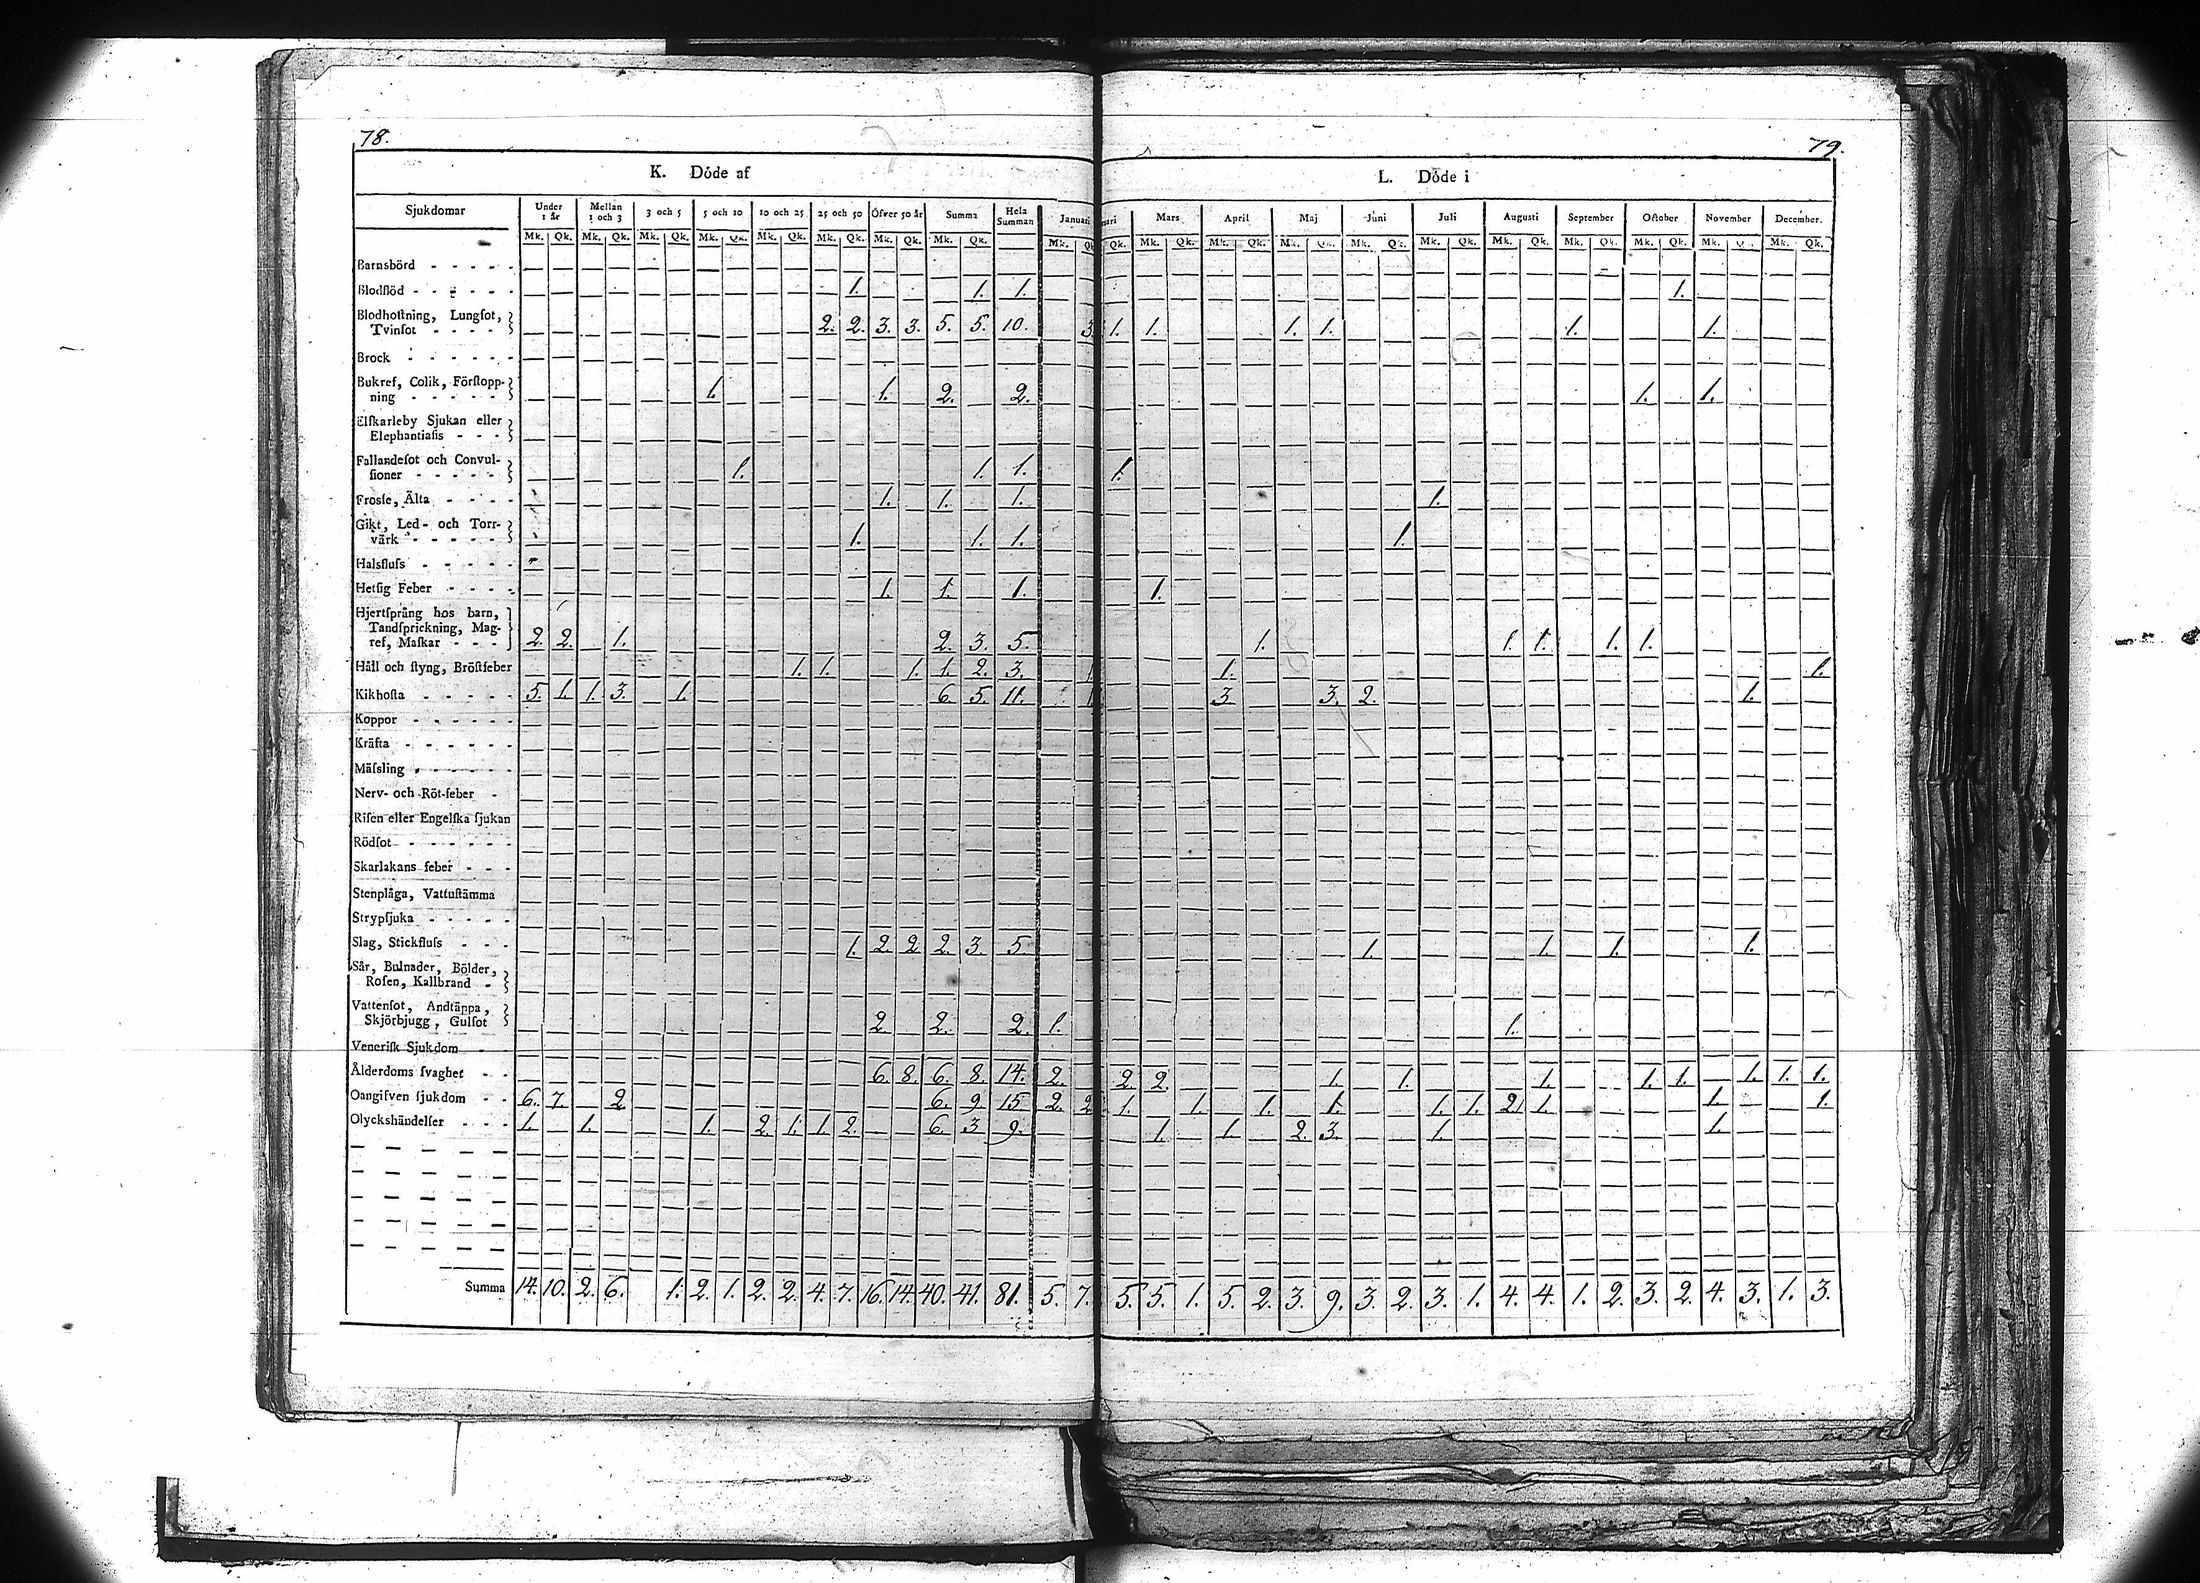 78.
K. Döde af
Sjukdomar | Under 1 år | Mellan 1 och 3 | 3 och 5 | 5 och 10 | 10 och 25 | 25 och 50 | Öfver 50 år | Summa | Hela Summan | Januari
Mk. Qk. Mk. Qk. Mk. Qk. Mk. Qk. Mk. Qk. Mk. Qk. Mk. Qk. Mk. Qk. Mk.
Barnsbörd
Blodflöd 1. 1. 1.
Blodhoſtning, Lungſot,
Tvinſot 2. 2. 3. 3. 5. 5. 10. 3.
Brock
Bukref, Colik, Förſtopp-
ning 1. 1. 2. 2.
Elſkarleby Sjukan eller
Elephantiaſis
Fallandeſot och Convul-
ſioner 1. 1. 1.
Froſſe, Älta 1. 1. 1.
Gikt, Led- och Torr-
värk 1. 1. 1.
Halsfluſs
Hetſig Feber 1. 1. 1.
Hjertſprång hos barn,
Tandſprickning, Mag-
ref, Maſkar 2. 2. 1. 2. 3. 5.
Håll och ſtyng, Bröſtfeber 1. 1. 1. 1. 2. 3. 1
Kikhoſta 5. 1. 1. 3. 1. 6. 5. 11. 1
Koppor
Kräfta
Mäſsling
Nerv- och Röt-feber
Riſen eller Engelſka ſjukan
Rödſot
Skarlakans feber
Stenplåga, Vattuſtämma
Strypſjuka
Slag, Stickfluſs 1. 2. 2. 2. 3. 5.
Sår, Bulnader, Bölder,
Roſen, Kallbrand
Vattenſot, Andtäppa,
Skjörbjugg, Gulſot 2. 2. 2. 1.
Veneriſk Sjukdom
Ålderdoms ſvaghet 6. 8. 6. 8. 14. 2.
Oangifven ſjukdom 6. 7. 2. 6. 9. 15. 2. 2.
Olyckshändelſer 1. 1. 1. 2. 1. 1. 2. 6. 3 9.
Summa 14. 10. 2. 6. 1. 2. 1. 2. 2. 4. 7. 16. 14. 40. 41. 81. 5. 7.
79.
L. Döde i
Mars | April | Maj | Juni | Juli | Auguſti | September | October | November | December.
Qk. Mk. Qk. Mk. Qk. Mk. Qk. Mk. Qk. Mk. Qk. Mk. Qk. Mk. Qk. Mk. Qk. Mk. Mk. Qk.
1.
1. 1. 1. 1. 1. 1.
1. 1.
1.
1.
1.
1.
1. 1. 1. 1. 1.
1. 1.
3 3. 2. 1.
1. 1. 1. 1.
1.
2. 2. 1. 1. 1. 1. 1. 1. 1. 1.
1. 1. 1. 1. 1. 1. 2. 1. 1. 1.
1. 1. 2. 3. 1. 1.
5. 5. 1. 5. 2. 3. 9. 3. 2. 3. 1. 4. 4. 1. 2. 3. 2. 4. 3. 1. 3.